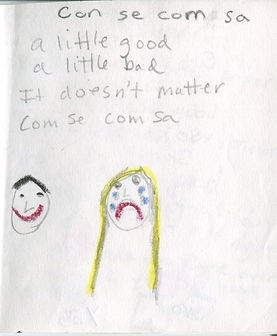 Con se com sa
a little good
a little bad
It doesn't matter
Com se com sa